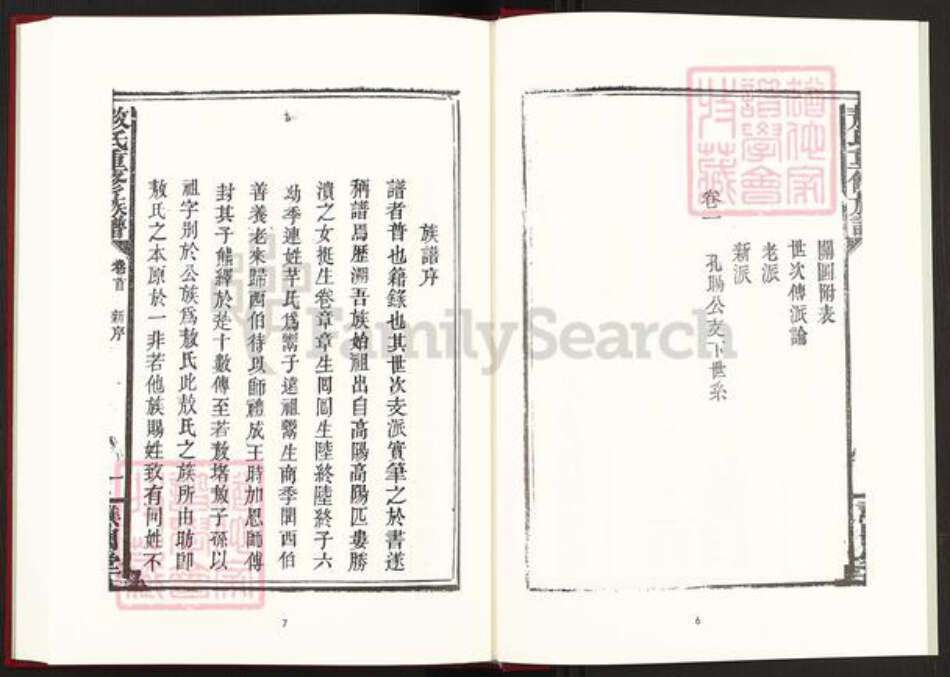 關圖附表
世次傳派論
老派
新派
卷一
孔賜公支下世系
6
族譜序
譜者普也籍錄也其世次支派實筆之於書遂
稱譜焉歷溯吾族始祖出自高陽高陽匹婁勝
潰之女挺生卷章章生囘囘生陸終陸終子六
幼季連姓芈氏爲鬻子遠祖鬻生商季聞西伯
善養老來歸西伯待以師禮成王時加恩師傅
封其子熊繹於楚十數傳至若敖堵敖子孫以
祖字別於公族爲敖氏此敖氏之族所由昉卽
敖氏之本原於一非若他族賜姓致有同姓不
敖氏重修族譜
卷首
新序
一
7
FamilySearch